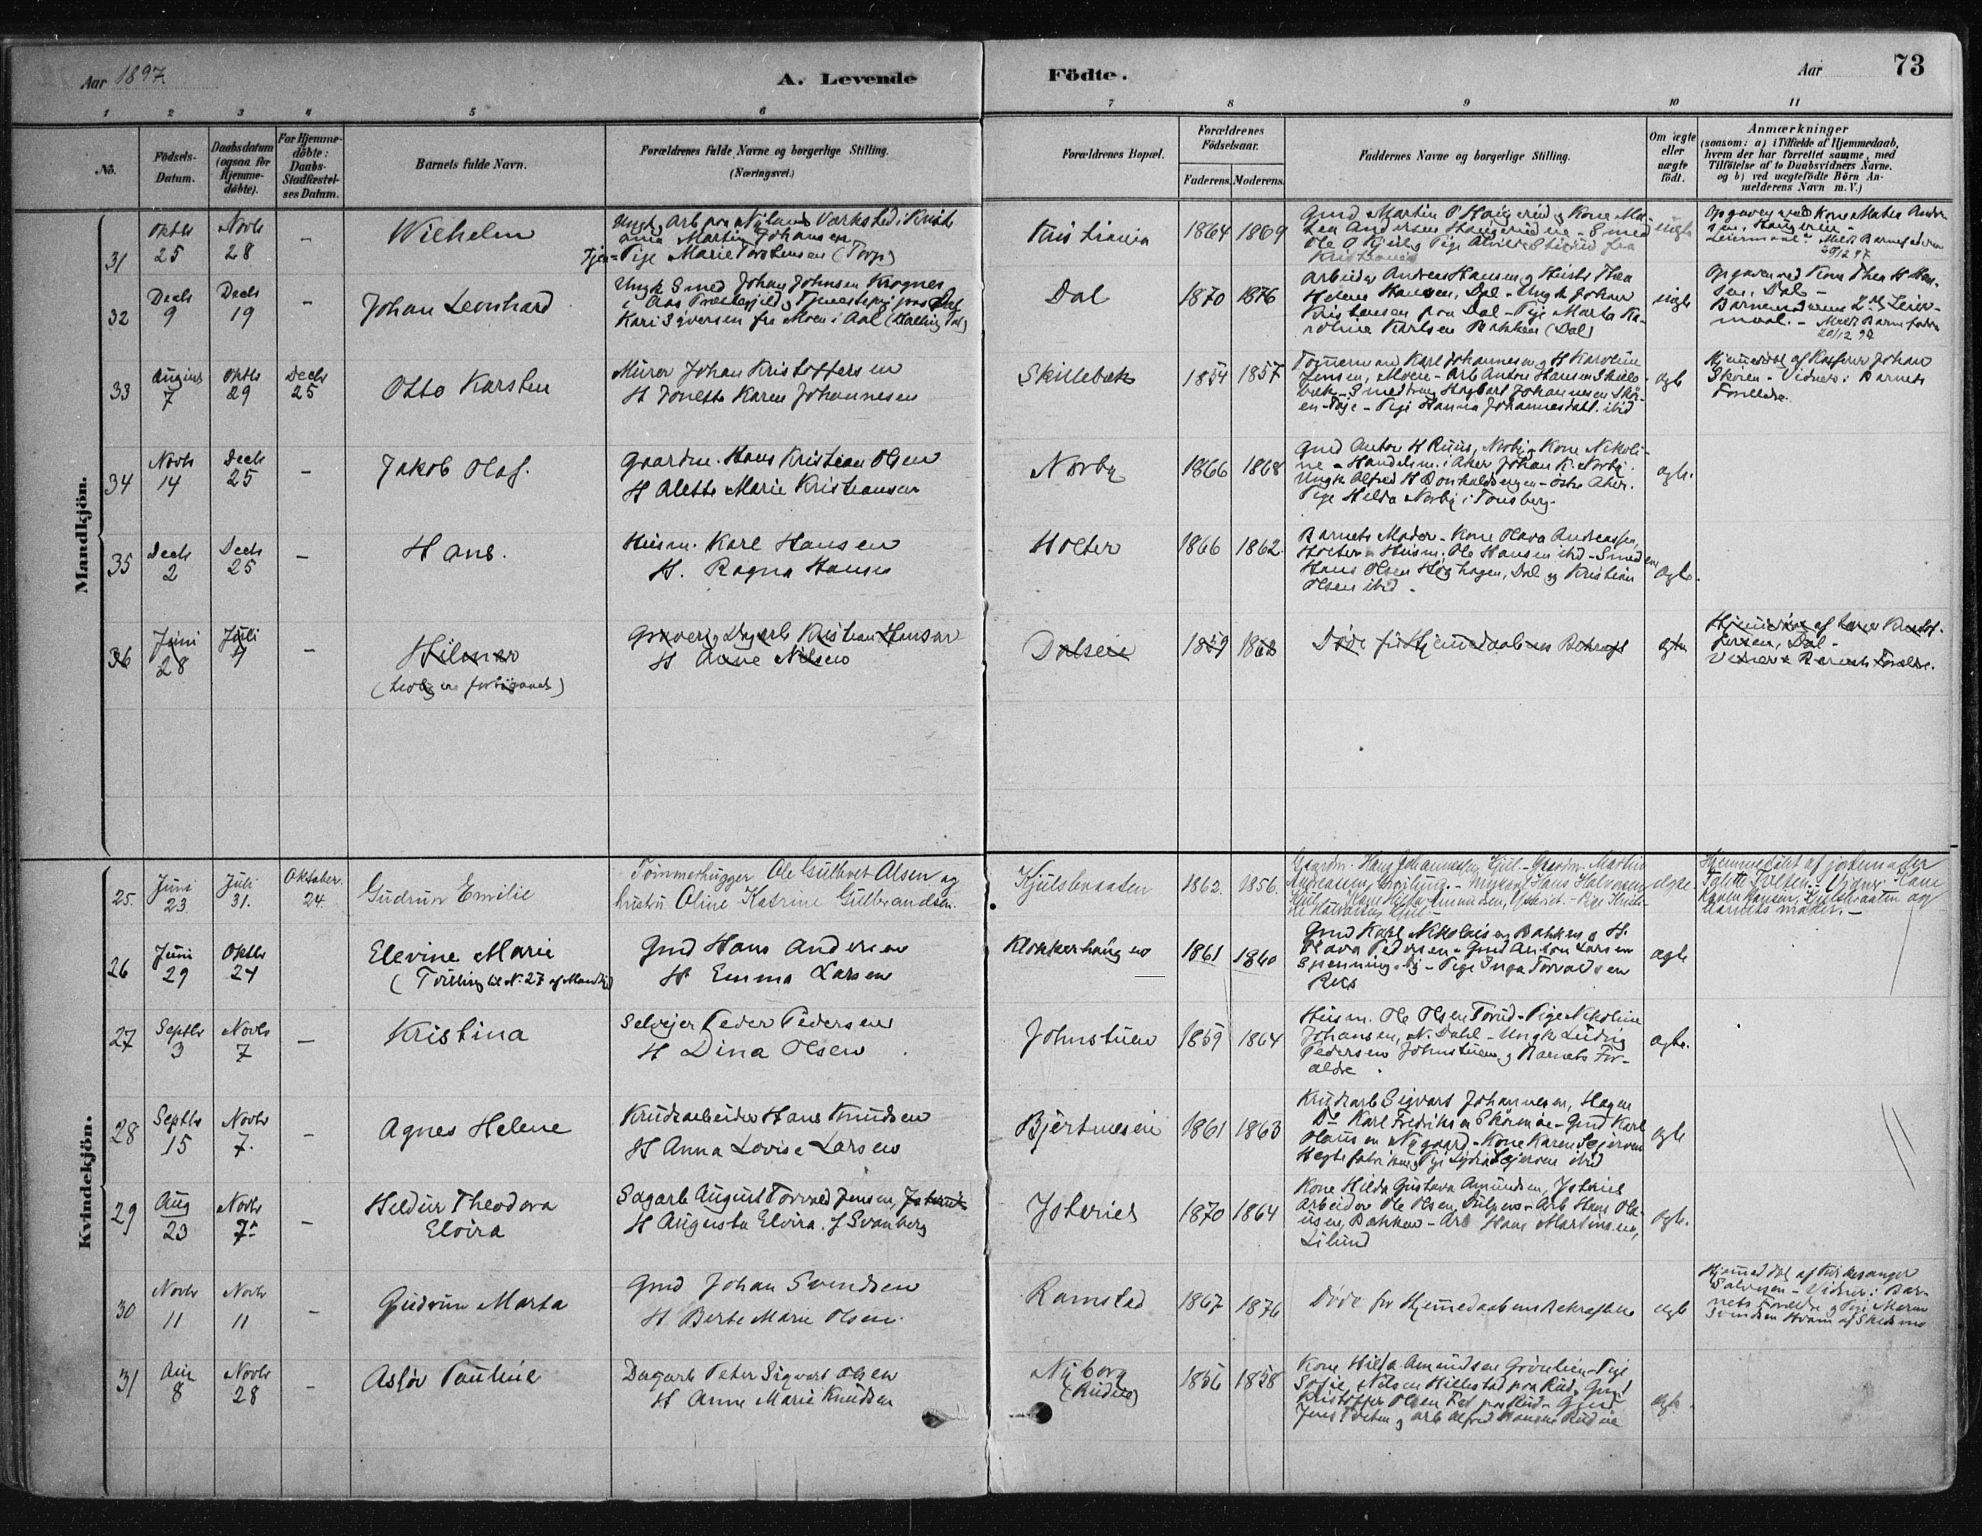 Aar 1897.
A. Levende Födte.
Aar 73
1 2 3 4 5 6 7 8 9 10 11
No.
Födsels-Datum.
Daabsdatum (ogsaa for Hjemme-döbte).
For Hjemme-döbte: Daabs-Stadfæstel-ses Datum.
Barnets fulde Navn.
Forældrenes fulde Navne og borgerlige Stilling. (Næringsvei.)
Forældrenes Bopæl.
Forældrenes Födselsaar.
Faderens. Moderens.
Faddernes Navne og borgerlige Stilling.
Om ægte eller uægte födt.
Anmærkninger
(saasom: a) i Tilfælde af Hjemmedaab,
hvem der har forrettet samme, med
Tilföielse af to Daabsvidners Navne.
og b) ved uægtefödte Börn An-
melderens Navn m. V.)
Mandkjön.
31 Oktbr 25 Novbr 28 - Wilhelm
Ungk. Arb. paa Nylands Værksted i Kristi-
ania Martin Johansen
Tjen-Pige Marie Torstensen (Torp)
Kristiania 1864 1869
Gmd Martin O Haugerud og Kone Ma-
thea Andersen Haugerud - Smed
Ole O
Kristiania
uægte
Opgaven ved Kone Mathea Ander-
sen, Haugerud -
Leiermaal: Meldt Barnefaderen
29/12 97
32 Decbr 9 Decbr 19 Johan Leonhard
Ungk Smed Johan Johnsen Krognes
i Aas Præstegjeld og Tjenestepige paa Dal
Kari Syversen fra Moen i Aal (Hallingdal)
Dal 1870 1876
Arbeider Andreas Hansen og Hustr Thea
Helene Hansen, Dal - Ungk Johan
Kristiansen paa Dal - Pige Marta Ka-
roline Karlsen Bakken (Dal)
uægte
Opgaven ved Kone Thea H Han-
sen, Dal -
Barnemoderens 2det Leier-
maal. - Meldt Barnefader
20/12 97
33 August 7 Oktbr 29 Decbr 25 Otto Karsten
Murer Johan Kristoffersen
H Jonette Karen Johannesen
Skillebæk 1854 1857
Tömmermand Karl Johannesen og H Karoline
Jensen, Moen - Arb Anton Hansen Skille-
bæk - Smedsvend Hagbart Johannesen Skö-
en - Pige Hanna Johannesdatt. ibid
ægte
Hjemmedöbt af Kasserer Johan
Sköien - Vidner: Barnets
Forældre.
34 Novbr 14 Decbr 25 - Jakob Olaf.
Gaardm. Hans Kristian Olsen
H Alette Marie Kristiansen
Norby 1866 1868
Gmd Anton H Ruus, Norby - Kone Nikoli-
ne - Handelsm. i Aker Johan K. Norby.
Ungk Alfred H - östre Aker.
Pige Hilda Norby i Tonsberg.
ægte.
35 Decbr 2 Decbr 25 - Hans.
Husm. Karl Hansen
H. Ragna Hansen
Holter 1866 1862.
Barnets Moder - Kone Olava Andreassen,
Holter - Husm. Ole Hansen ibid - Smed
Hans Olsen Haghagen, Dal og Kristian
Olsen ibid -
ægte.
36 Juni 28 Juli 4 - Hilmar
Graver og Dagarb Kristian Hansen
H Anne Nilsen
Dalseie 1859 1862
Döde för Hjemmedaabens Bekræft
ægte
Hjemmedöbt af Lærer
Dal -
Vidner: Barnets Forældre.
Kvindekjön.
25. Juni 23 Juli 31. Oktober. 24 Gudrun Emilie
Tømmerhugger Ole Gulbrt Olsen og
hustru Oline Katrine Gulbrandsen.
Kjulsbraaten 1862. 1856.
Gaardm. Hans Johannesen, Kjul - Gaardm. Martin
Andreassen, - Ungkarl Hans Halvorsen
ægte.
Hjemmedøbt af jordemoder
Vidner: Kone
Karen Hansen, Kjulsbraaten og
barnets moder. -
26 Juni 29 Oktbr 24 Elevine Marie
(Tvilling til N: 27 af Mandkj)
Gmd Hans Andersen
H Emma Larsen
Klokkerhaugen 1861 1860
Gmd Karl Nikolaisen Bakken og H.
Olava Pedersen - Gmd Anton Larsen
Spenning - Pige Inga Torvaldsen
ægte
27 Septbr 3 Novbr 7 - Kristina
Selveier Peder Pedersen
H Dina Olsen
Johnstuen 1859 1864
Husm. Ole Olsen Torud - Pige Nikoline
Johansen, N. Dahl - Ungk Ludvig
Pedersen Johnstuen og Barnets For-
ældre.
ægte.
28 Septbr 15 Novbr 7. - Agnes Helene
Krudtarbeider Hans Knudsen
H Anna Lovise Larsen
Bjertneseie 1861 1863
Krudtarb Sigvart Johannesen, Hagen
Do Karl Fredriksen Sköieneie - Gmd Karl
Olausen Nygaard - Kone Karen Sejersen
Hegtefabriken, Pige Lydia Sejersen ibid
ægte
29 Aug 23 Novbr 7 - Heldur Theodora
Elvira
Sagarb August Torvald Jensen,
H Augusta Elvira. J Svanberg
1870 1864
Kone Hilda Gustava Amundsen,
Arbeider Ole Olsen - Arb Hans Ola-
usen, Bakken - Arb Hans Martinsen,
ægte.
30 Novbr 11 Novbr 11 - Gudrun Marta
Gmd Johan Svendsen
H Berte Marie Olsen.
Ramstad 1867 1876
Döde for Hjemmedaabens Bekræftelse
ægte
Hjemmedöbt af Kirkesanger
Halvorsen - Vidner: Bar-
nets Forældre og Pige Maren
Svendsen Hvam af Skedsmo
31 Aug 8 Novbr 28 - Aslöv Pauline
Dagarb Peter Sigvart Olsen
H Anne Marie Knudsen
Nyborg
(Rudeie)
1856 1858
Kone Hilda Amundsen Grönlien - Pige
Sofie Nilsen Hillestad paa Rud - Gmd
Kristoffer Olsen - Gmd
Jens og Arb Alfred Hansen Rudeie
ægte.